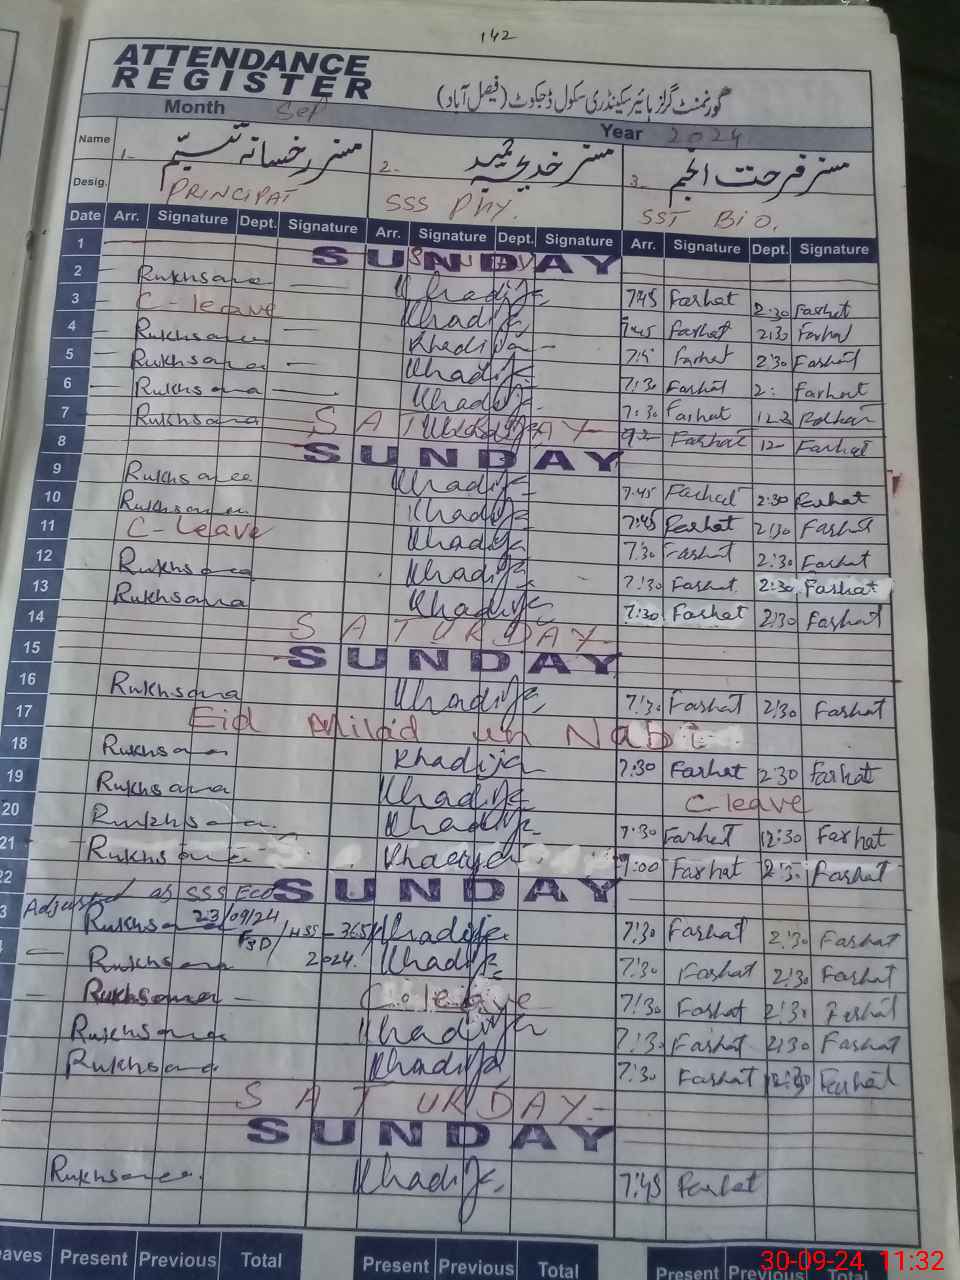 142
ATTENDANCE
REGISTER
گورنمنٹ گرلز ہائیر سیکنڈری سکول ڈجکوٹ (فیصل آباد)
Month Sep Year 2024
Name 1- مسز رخسانہ تسنیم 2- مسز خدیجہ 3- مسز فرحت انجم
Desig. PRINCIPAL SSS PHY. SST BIO.
Date Arr. Signature Dept. Signature Arr. Signature Dept. Signature Arr. Signature Dept. Signature
1 SUNDAY
2 Rukhsana Khadija 7:45 Farhat 2:30 Farhat
3 C-leave Khadija 7:45 Farhat 2:30 Farhat
4 Rukhsana Khadija 7:45 Farhat 2:30 Farhat
5 Rukhsana Khadija 7:30 Farhat 2: Farhat
6 Rukhsana Khadija 7:30 Farhat
7 Rukhsana SATURDAY Khadija Farhat 12- Farhat
8 SUNDAY
9 Rukhsana Khadija 7:45 Farhat 2:30 Farhat
10 Rukhsana Khadija 7:45 Farhat 2:30 Farhat
11 C-leave Khadija 7:30 Farhat 2:30 Farhat
12 Rukhsana Khadija 7:30 Farhat 2:30 Farhat
13 Rukhsana Khadija 7:30 Farhat 2:30 Farhat
14 SATURDAY
15 SUNDAY
16 Rukhsana Khadija 7:30 Farhat 2:30 Farhat
17 Eid Milad un Nabi
18 Rukhsana Khadija 7:30 Farhat 2:30 Farhat
19 Rukhsana Khadija C leave
20 Rukhsana Khadija 7:30 Farhat 12:30 Farhat
21 Rukhsana Khadija 9:00 Farhat 2:30 Farhat
22 SUNDAY
Adjusted as SSS Eco
3 Rukhsana 23/09/24 Khadija 7:30 Farhat 2:30 Farhat
Rukhsana 2024. Khadija 7:30 Farhat 2:30 Farhat
Rukhsana C. leave 7:30 Farhat 2:30 Farhat
Rukhsana Khadija 7:30 Farhat 2:30 Farhat
Rukhsana Khadija 7:30 Farhat 12:30 Farhat
SATURDAY
SUNDAY
Rukhsana Khadija 7:45 Farhat
eaves Present Previous Total Present Previous Total Present Previous Total
30-09-24 11:32